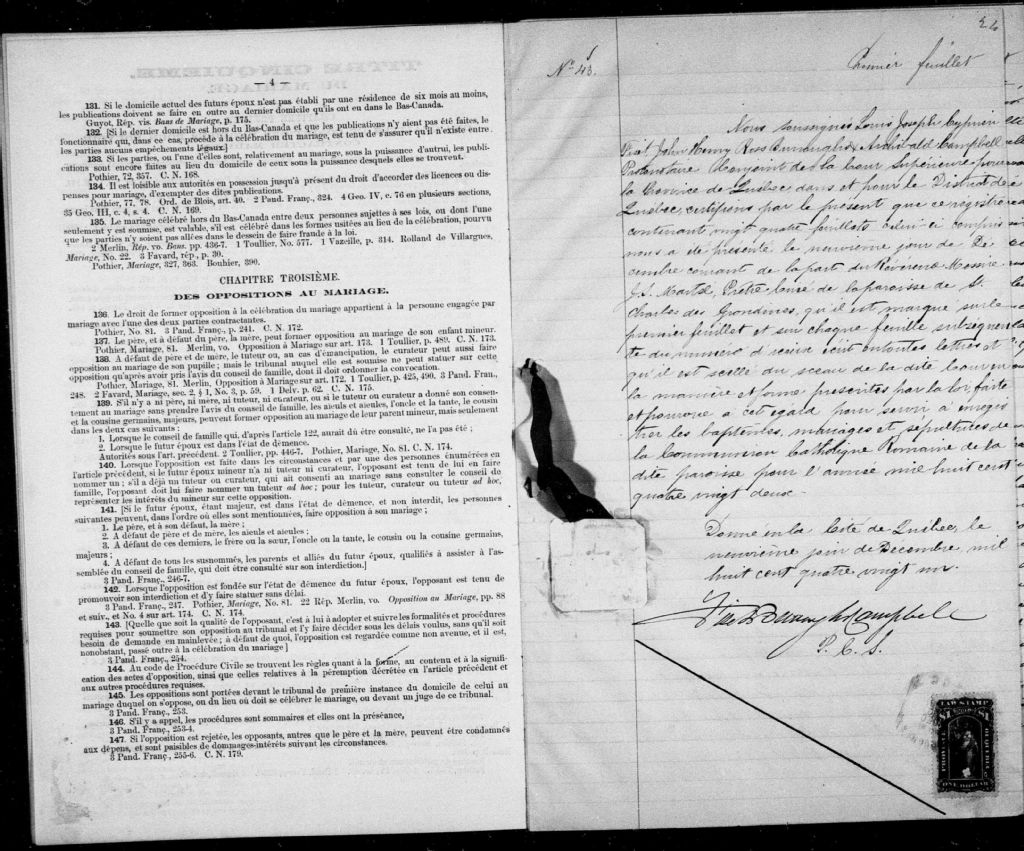 — 4 —
131. Si le domicile actuel des futurs époux n'est pas établi par une résidence de six mois au moins,
les publications doivent se faire en outre au dernier domicile qu'ils ont eu dans le Bas-Canada.
Guyot, Rép. vis. Bans de Mariage, p. 175.
132. [Si le dernier domicile est hors du Bas-Canada et que les publications n'y aient pas été faites, le
fonctionnaire qui, dans ce cas, procède à la célébration du mariage, est tenu de s'assurer qu'il n'existe entre
les parties aucuns empêchements légaux.]
133. Si les parties, ou l'une d'elles, sont, relativement au mariage, sous la puissance d'autrui, les publi-
cations sont encore faites au lieu du domicile de ceux sous la puissance desquels elles se trouvent.
Pothier, 72, 357. C. N. 168.
134. Il est loisible aux autorités en possession jusqu'à présent du droit d'accorder des licences ou dis-
penses pour mariage, d'exempter des dites publications.
Pothier, 77, 78. Ord. de Blois, art. 40. 2 Pand. Franç., 324. 4 Geo. IV, c. 76 en plusieurs sections,
35 Geo. III, c. 4, s. 4. C. N. 169.
135. Le mariage célébré hors du Bas-Canada entre deux personnes sujettes à ses lois, ou dont l'une
seulement y est soumise, est valable, s'il est célébré dans les formes usitées au lieu de la célébration, pourvu
que les parties n'y soient pas allées dans le dessein de faire fraude à la loi.
2 Merlin, Rép. vo. Bans. pp. 436-7. 1 Toullier, No. 577. 1 Vazeille, p. 314. Rolland de Villargues,
Mariage, No. 22. 3 Favard, rép., p. 30.
Pothier, Mariage, 327, 363. Bouhier, 390.
CHAPITRE TROISIÈME.
DES OPPOSITIONS AU MARIAGE.
136. Le droit de former opposition à la célébration du mariage appartient à la personne engagée par
mariage avec l'une des deux parties contractantes.
Pothier, No. 81. 3 Pand. Franç., p. 241. C. N. 172.
137. Le père, et à défaut du père, la mère, peut former opposition au mariage de son enfant mineur.
Pothier, Mariage, 81. Merlin, vo. Opposition à Mariage sur art. 173. 1 Toullier, p. 489. C. N. 173.
138. A défaut de père et de mère, le tuteur ou, au cas d'émancipation, le curateur peut aussi faire
opposition au mariage de son pupille; mais le tribunal auquel elle est soumise ne peut statuer sur cette
opposition qu'après avoir pris l'avis du conseil de famille, dont il doit ordonner la convocation.
Pothier, Mariage, 81. Merlin, Opposition à Mariage sur art. 172. 1 Toullier, p. 425, 490. 3 Pand. Fran.,
248. 2 Favard, Mariage, sec. 2, § 1, No. 3, p. 59. 1 Delv. p. 62. C. N. 175.
139. S'il n'y a ni père, ni mère, ni tuteur, ni curateur, ou si le tuteur ou curateur a donné son consen-
tement au mariage sans prendre l'avis du conseil de famille, les aïeuls et aïeules, l'oncle et la tante, le cousin
et la cousine germains, majeurs, peuvent former opposition au mariage de leur parent mineur, mais seulement
dans les deux cas suivants :
1. Lorsque le conseil de famille qui, d'après l'article 122, aurait dû être consulté, ne l'a pas été ;
2. Lorsque le futur époux est dans l'état de démence.
Autorités sous l'art. précédent. 2 Toullier, pp. 446-7. Pothier, Mariage, No. 81. C. N. 174.
140. Lorsque opposition est faite dans les circonstances et par une des personnes énumérées en
l'article précédent, si le futur époux mineur n'a ni tuteur ni curateur, l'opposant est tenu de lui en faire
nommer un ; s'il a déjà un tuteur ou curateur, qui ait consenti au mariage sans consulter le conseil de
famille, l'opposant doit lui faire nommer un tuteur ad hoc ; pour les tuteur, curateur ou tuteur ad hoc,
représenter les intérêts du mineur sur cette opposition.
141. [Si le futur époux, étant majeur, est dans l'état de démence, et non interdit, les personnes
suivantes peuvent, dans l'ordre où elles sont mentionnées, faire opposition à son mariage ;
1. Le père, et à son défaut, la mère ;
2. A défaut de père et de mère, les aïeuls et aïeules ;
3. A défaut de ces derniers, le frère ou la sœur, l'oncle ou la tante, le cousin ou la cousine germains,
majeurs ;
4. A défaut de tous les susnommés, les parents et alliés du futur époux, qualifiés à assister à l'as-
semblée du conseil de famille, qui doit être consulté sur son interdiction.]
3 Pand. Franç., 246-7.
142. Lorsque l'opposition est fondée sur l'état de démence du futur époux, l'opposant est tenu de
promouvoir son interdiction et d'y faire statuer sans délai.
3 Pand. Franç., 247. Pothier, Mariage, No. 81. 22 Rép. Merlin, vo. Opposition au Mariage, pp. 88
et suiv., et No. 4 sur art. 174. C. N. 174.
143. [Quelle que soit la qualité de l'opposant, c'est à lui à adopter et suivre les formalités et procédures
requises pour soumettre son opposition au tribunal et l'y faire décider sous les délais voulus, sans qu'il soit
besoin de demande en mainlevée ; à défaut de quoi, l'opposition est regardée comme non avenue, et il est,
nonobstant, passé outre à la célébration du mariage]
3 Pand. Franç., 254.
144. Au code de Procédure Civile se trouvent les règles quant à la forme, au contenu et à la signifi-
cation des actes d'opposition, ainsi que celles relatives à la péremption décrétée en l'article précédent et
aux autres procédures requises.
145. Les oppositions sont portées devant le tribunal de première instance du domicile de celui au
mariage duquel on s'oppose, ou du lieu où doit se célébrer le mariage, ou devant un juge de ce tribunal.
3 Pand. Franç., 253.
146. S'il y a appel, les procédures sont sommaires et elles ont la préséance,
3 Pand. Franç., 253-4.
147. Si l'opposition est rejetée, les opposants, autres que le père et la mère, peuvent être condamnés
aux dépens, et sont paisibles de dommages-intérêts suivant les circonstances.
3 Pand. Franç., 255-6. C. N. 179.
No 43.
Premier feuillet
Nous soussignés Louis Joseph Cyprien
Fiset John Henry Ross Burroughs & Archibald Campbell
Protonotaire Conjoint de la Cour Supérieure pour
la Province de Québec dans et pour le District de
Québec, certifions par le présent que ce registre
contenant vingt quatre feuillets celui-ci compris
nous a été présenté le neuvième jour de Dé-
cembre courant de la part du Révérend Messire
Martel, Prêtre Curé de la paroisse de St.
Charles des Grondines, qu'il est marqué sur le
premier feuillet et sur chaque feuille subséquen
te du numéro d'icelui écrit en toutes lettres et
qu'il est scellé du sceau de la dite Cour en
la manière et forme prescrites par la loi faite
et pourvue à cet égard pour servir à enregis
trer les baptêmes, mariages et sépultures de
la Communion Catholique Romaine de la
dite paroisse pour l'année mil huit cent
quatre vingt deux.
Donné en la Cité de Québec, le
neuvième jour de Décembre, mil
huit cent quatre vingt un.
Fiset Burroughs Campbell
P. C. S.
LAW STAMP
$1 $1
PROVINCE OF QUEBEC
ONE DOLLAR